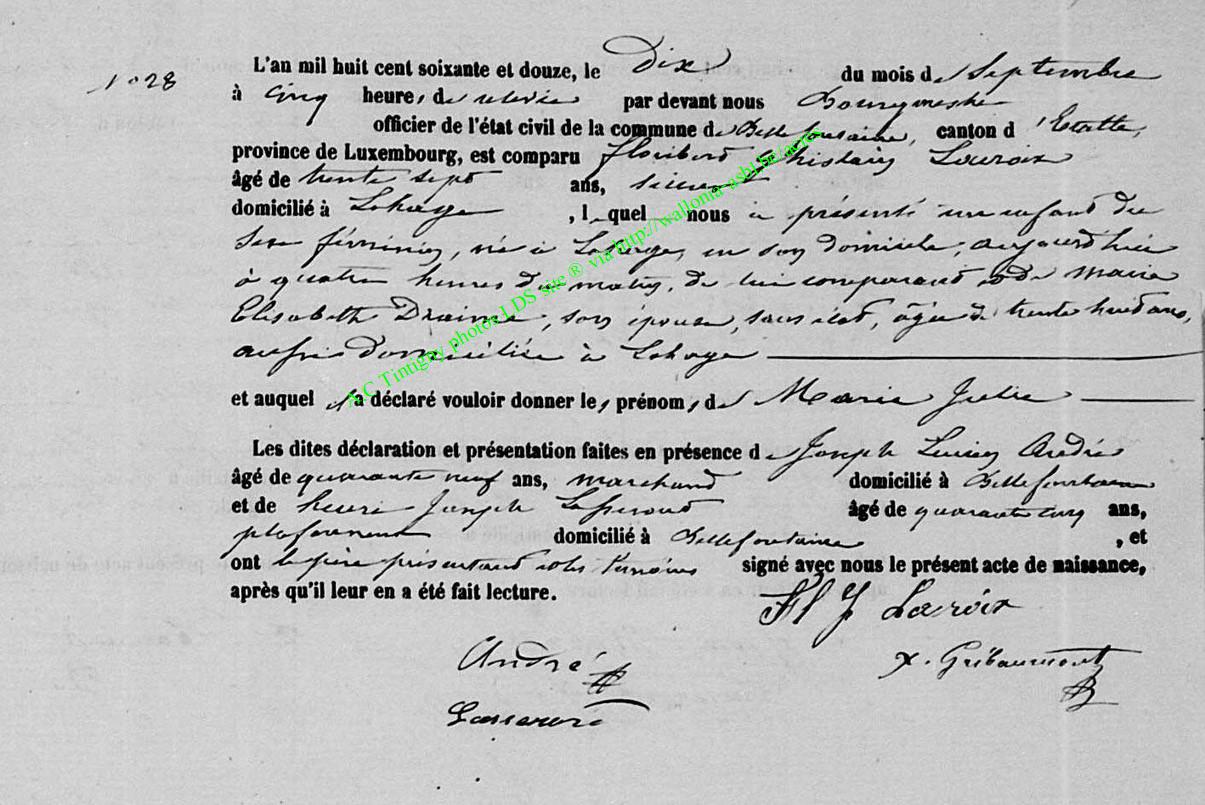 N° 28
L'an mil huit cent soixante et douze, le dix du mois de Septembre
à cinq heures de relevée par devant nous Bourgmestre
officier de l'état civil de la commune de Bellefontaine, canton d'Etalle,
province de Luxembourg, est comparu Ghislain Lacroix
âgé de trente sept ans,
domicilié à Lahage, lequel nous a présenté un enfant du
sexe féminin, né à Lahage, en son domicile, aujourd'hui
à quatre heures du matin, de lui comparant et de Marie
Elisabeth Draime, son épouse, sans état, âgée de trente huit ans,
aussi domiciliée à Lahage
et auquel il a déclaré vouloir donner les prénoms de Marie Julie
Les dites déclaration et présentation faites en présence de Joseph Lucien André
âgé de quarante neuf ans, marchand domicilié à Bellefontaine
et de henri Joseph âgé de quarante cinq ans,
plafonneur domicilié à Bellefontaine, et
ont le père présentant et les témoins signé avec nous le présent acte de naissance,
après qu'il leur en a été fait lecture.
Fl J Lacroix
André
X. Gribaumont
AC Tintigny photos LDS site ® via http://wallonia-asbl.be/acte